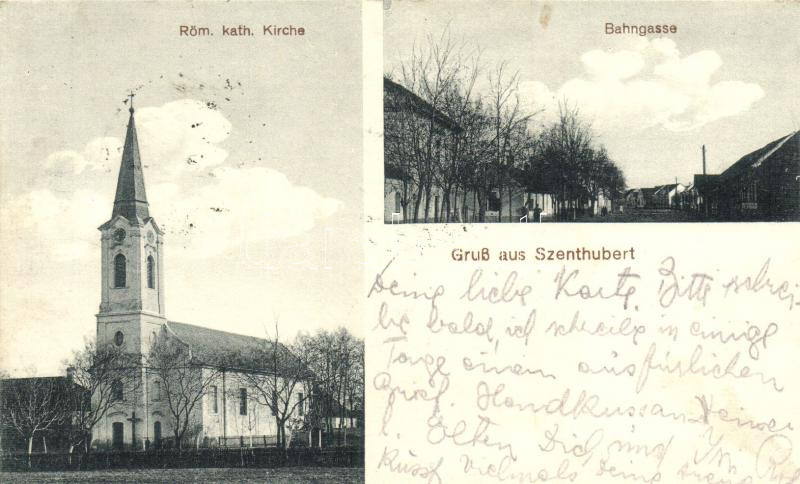 Röm. kath. Kirche
Bahngasse
Gruß aus Szenthubert
Deine liebe Karte. Bitte schrei-
be bald, ich schreibe in einige
Tage einen ausfürlichen
Brief. Handkuss an Deine
l. Eltern Dich und
Küsst vielmals Deine